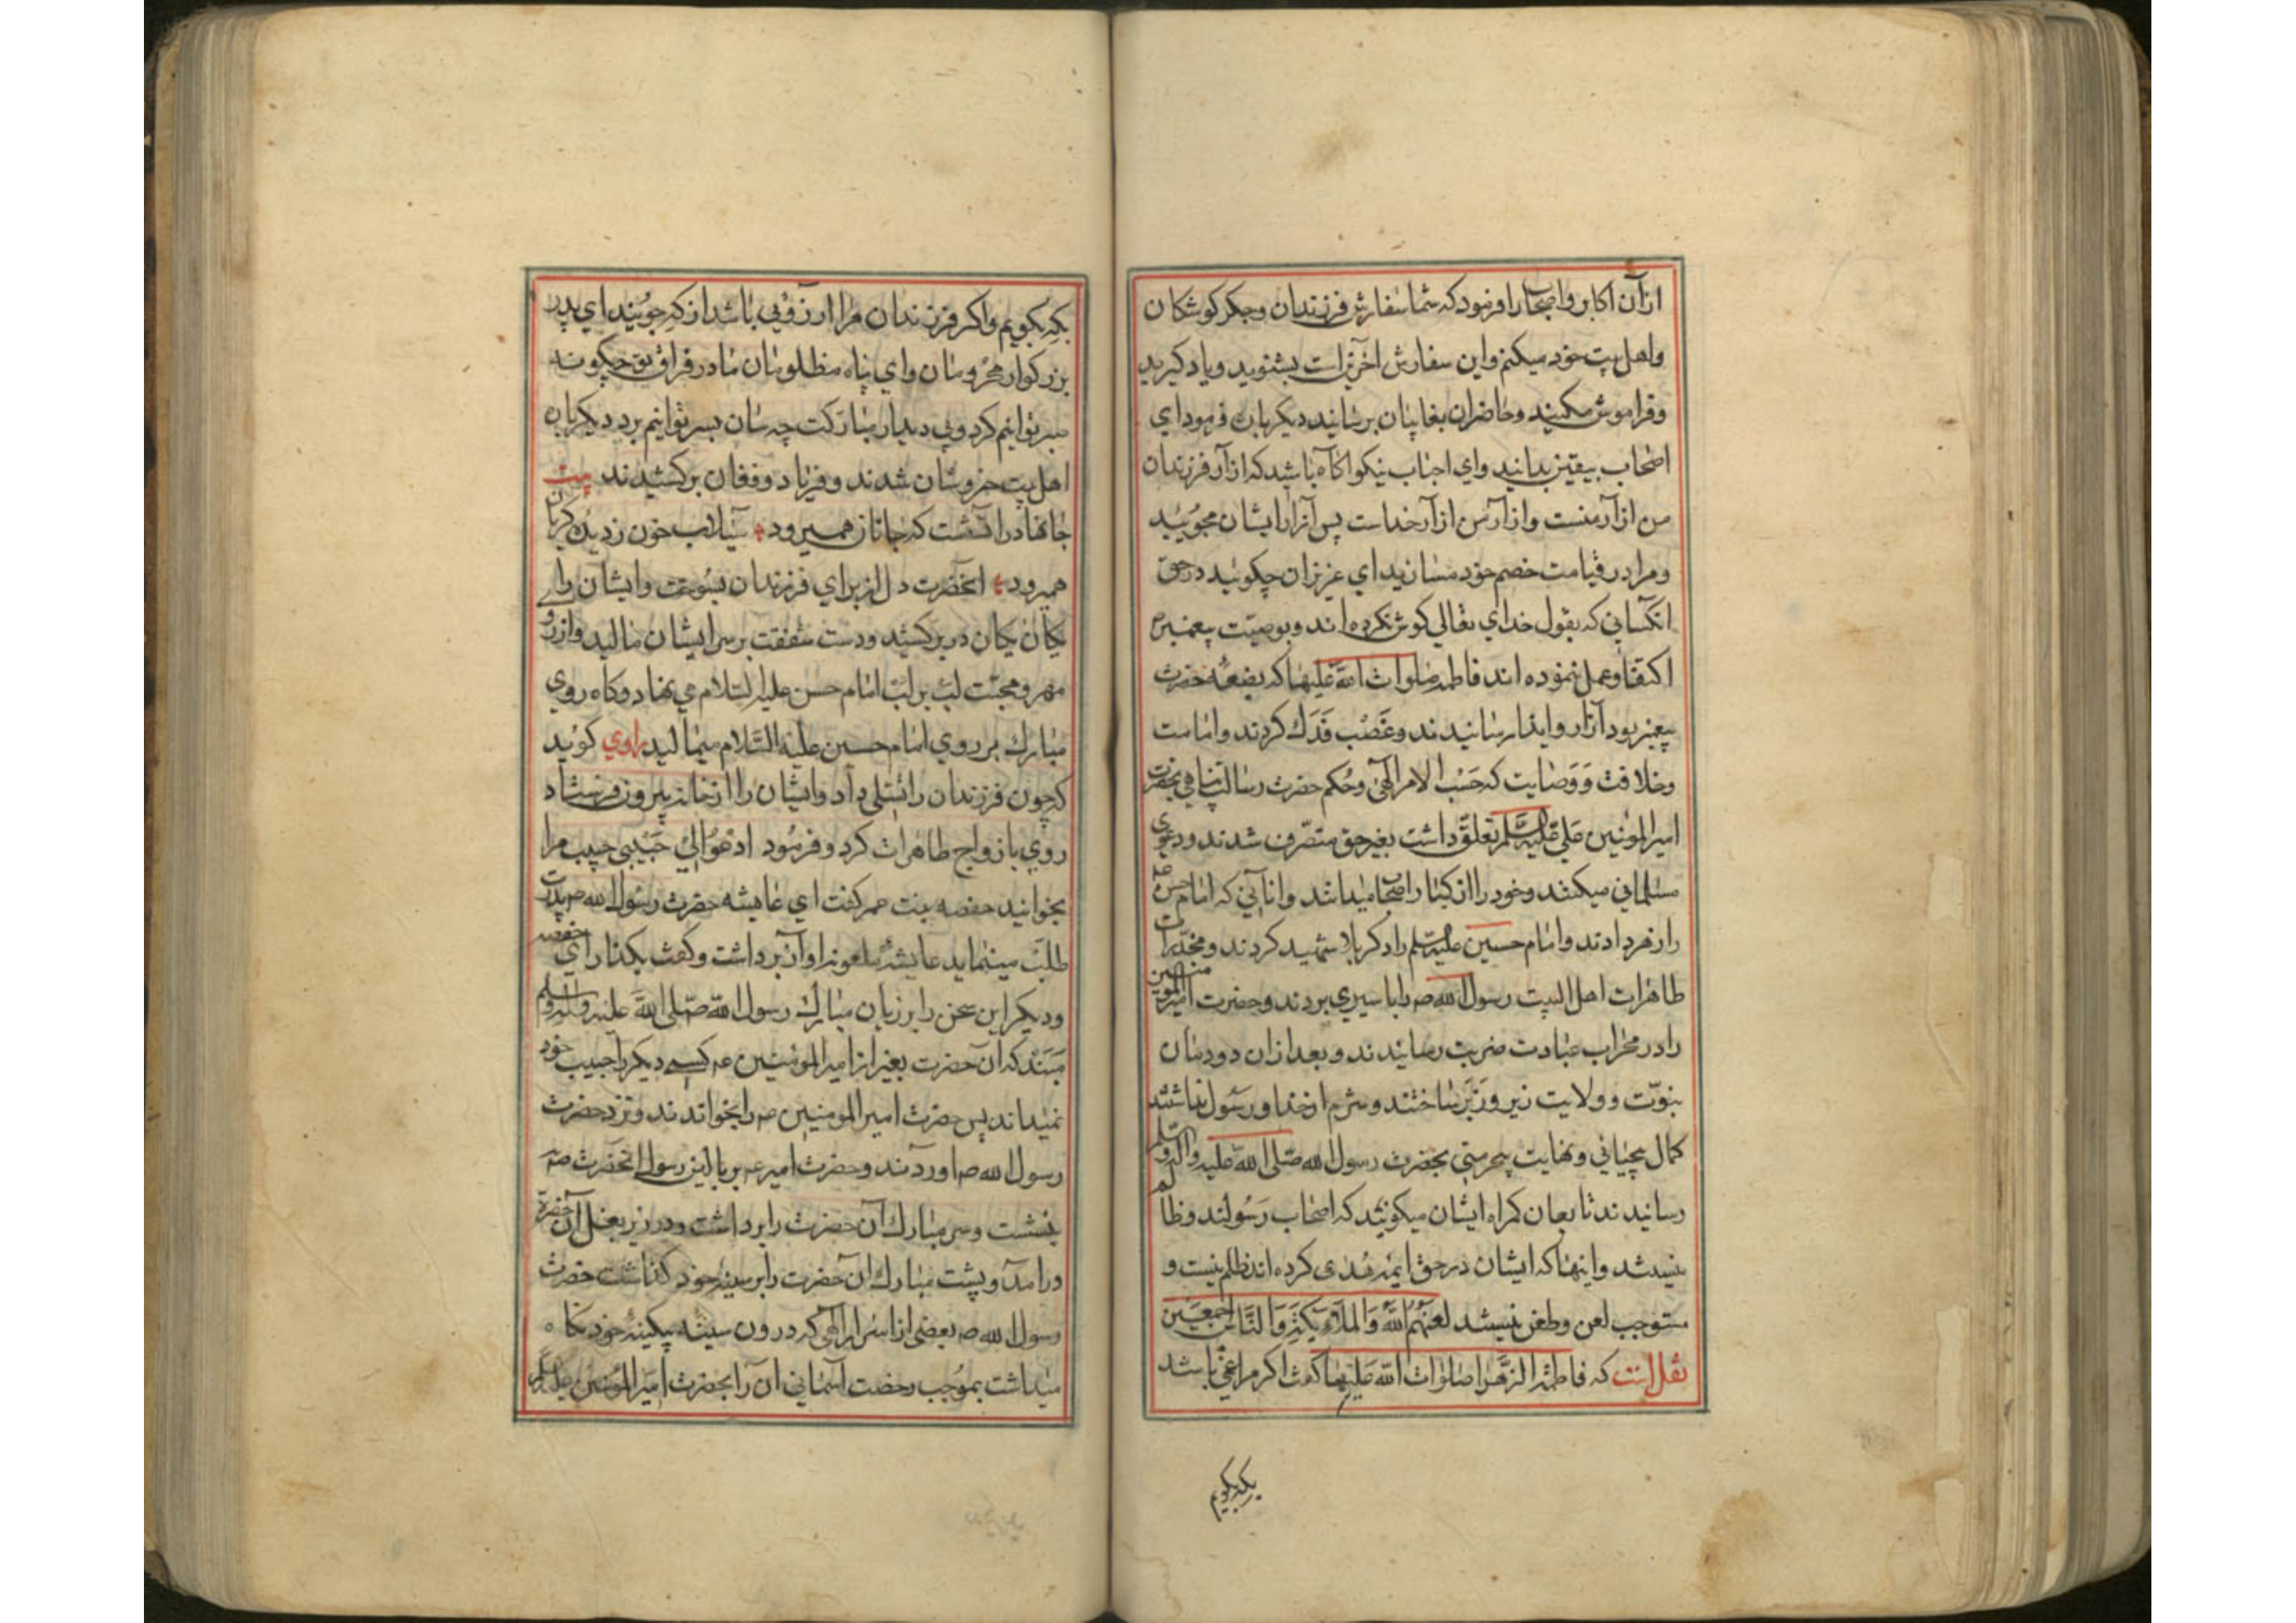 ازآن اکابر واصحاب را فرمود که شما سفارش فرزندان وجکر کوشکان
واهل بیت خود میکنم واین سفارش آخرین است بشنوید ویاد کیرید
وفراموش مکنید وحاضران بغایبان برسانید دیکر باره فرمود ای
اصحاب بیقین بدانید وای احباب نیکو آکاه باشید که ازآر فرزندان
من ازآر منست وازآر من ازآر خداست پس آزار ایشان مجوئید
ومرا در قیامت خصم خود مسازید ای عزیزان چکوئید در حق
انکسانی که بقول خدای تعالی کوش نکرده اند وبوصیت پیغمبر ص
اکتفا وعمل ننموده اند فاطمه صلوات الله علیها که بضعۀ حضرت
پیغمبر بود آزار وایذا رسانیدند وغَصْب فَدَك کردند وامامت
وخلافت وَوَصایت که حَسْب الامر الٓهی وحُکم حضرت رسالت پناهی بحضرت
امیرالمؤمنین علی علیه السلم تعلّق داشت بغیر حق متصّرف شدند ودعوی
مسلمانی میکنند وخود را از کبار اصحاب میدانند وانانی که امام حسن ع
را زهر دادند وامام حسین علیه السلم را در کربلا شهید کردند ومخدّرات
طاهرات اهل البیت رسول الله ص را باسیری بردند وحضرت امیرالمومنین
را در محراب عبادت ضربت رسانیدند وبعد ازان دودمان
نبوّت وولایت زیر وزَبَر ساختند وشرم از خدا ورسول نداشتند
کمال بیحیانی ونهایت بیحرمتی بحضرت رسول الله صلی الله علیه وآله وسلم
رسانیدند تابعان کمراه ایشان میکویند که اصحاب رَسُولند وظالم
نیستند واینها که ایشان در حق ایمۀ هُدی کرده اند ظلم نیست و
مستوجب لعن وطعن نیستند لعنهُم اللّٰه وَالملآءِیکَتِه وَالنَّاسِ اجمعَین
نقل است که فاطمة الزَّهرا صلوٰات الله علیها کفت اکر مرا غمی باشد
بکه بکویم
بکِه بکویم واکر فرزندان مرا آرزوئی باشد از که جویند ای پدر
بزرکوار محرومان وای پناه مظلومان ما در فراق تو چکونه
صبر توانیم کرد وبی دیدار مبارکت چه سان بسر توانیم برد دیکر باره
اهل بیت خروشان شدند وفریاد وفغان برکشیدند بیت
جانها در آتشست که جانان همیرود سیلاب خون ز دیده کریان
همیرود انحضرت دل از برای فرزندان بسوخت وایشان را
یکان یکان در بر کشید ودست شفقت بر سر ایشان مالید واز رو
مهر ومحبّت لب بر لب امام حسن علیه السّلام می نهاد وکاه روی
مبارك بر روی امام حسین علیه السّلام میمالید راوی کوید
که چون فرزندان را تسلی داد وایشان را از خانه بیرون فرستاد
روی بازواج طاهرات کرد وفرمود ادعُوا الیّ حَبیبی حبیب مرا
بخوانید حفصه بنت عمر کفت ای عایشه حضرت رسول الله ص پدرت
طلب مینماید عایشۀ ملعونه اوآن برداشت وکفت بکذار ای حفصه
ودیکر این سخن را بر زبان مبارك رسول الله صلی الله علیه وآله وسلم
مَبَند که آن حضرت بغیر از امیرالمومنین ع کسی دیکر را حبیب خود
نمیداند پس حضرت امیرالمومنین ع را بخواندند ونزد حضرت
رسول الله ص اوردند وحضرت امیر ع بر بالین رسول انحضرت ص
بنشست وسر مبارك آن حضرت را برداشت ودر زیر بغل آن حضرة
درامد وپشت مبارك آن حضرت را بر سینۀ خود کذاشت حضرت
رسول الله ص بعضی از اسرار الٓهی که درون سینۀ بیکینۀ خود نکاه
میداشت بموجب رخصت آسمانی ان را بحضرت امیرالمؤمنین علیه السلم